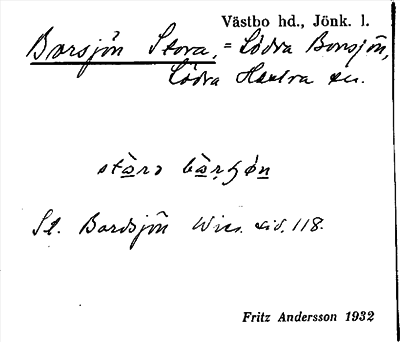 Västbo hd., Jönk. l.
Borsjön Stora, = Södra Borsjön,
Södra Hestra sn.
stòra bàrʂǿn
St. Bordsjön Wies. sid. 118.
Fritz Andersson 1932